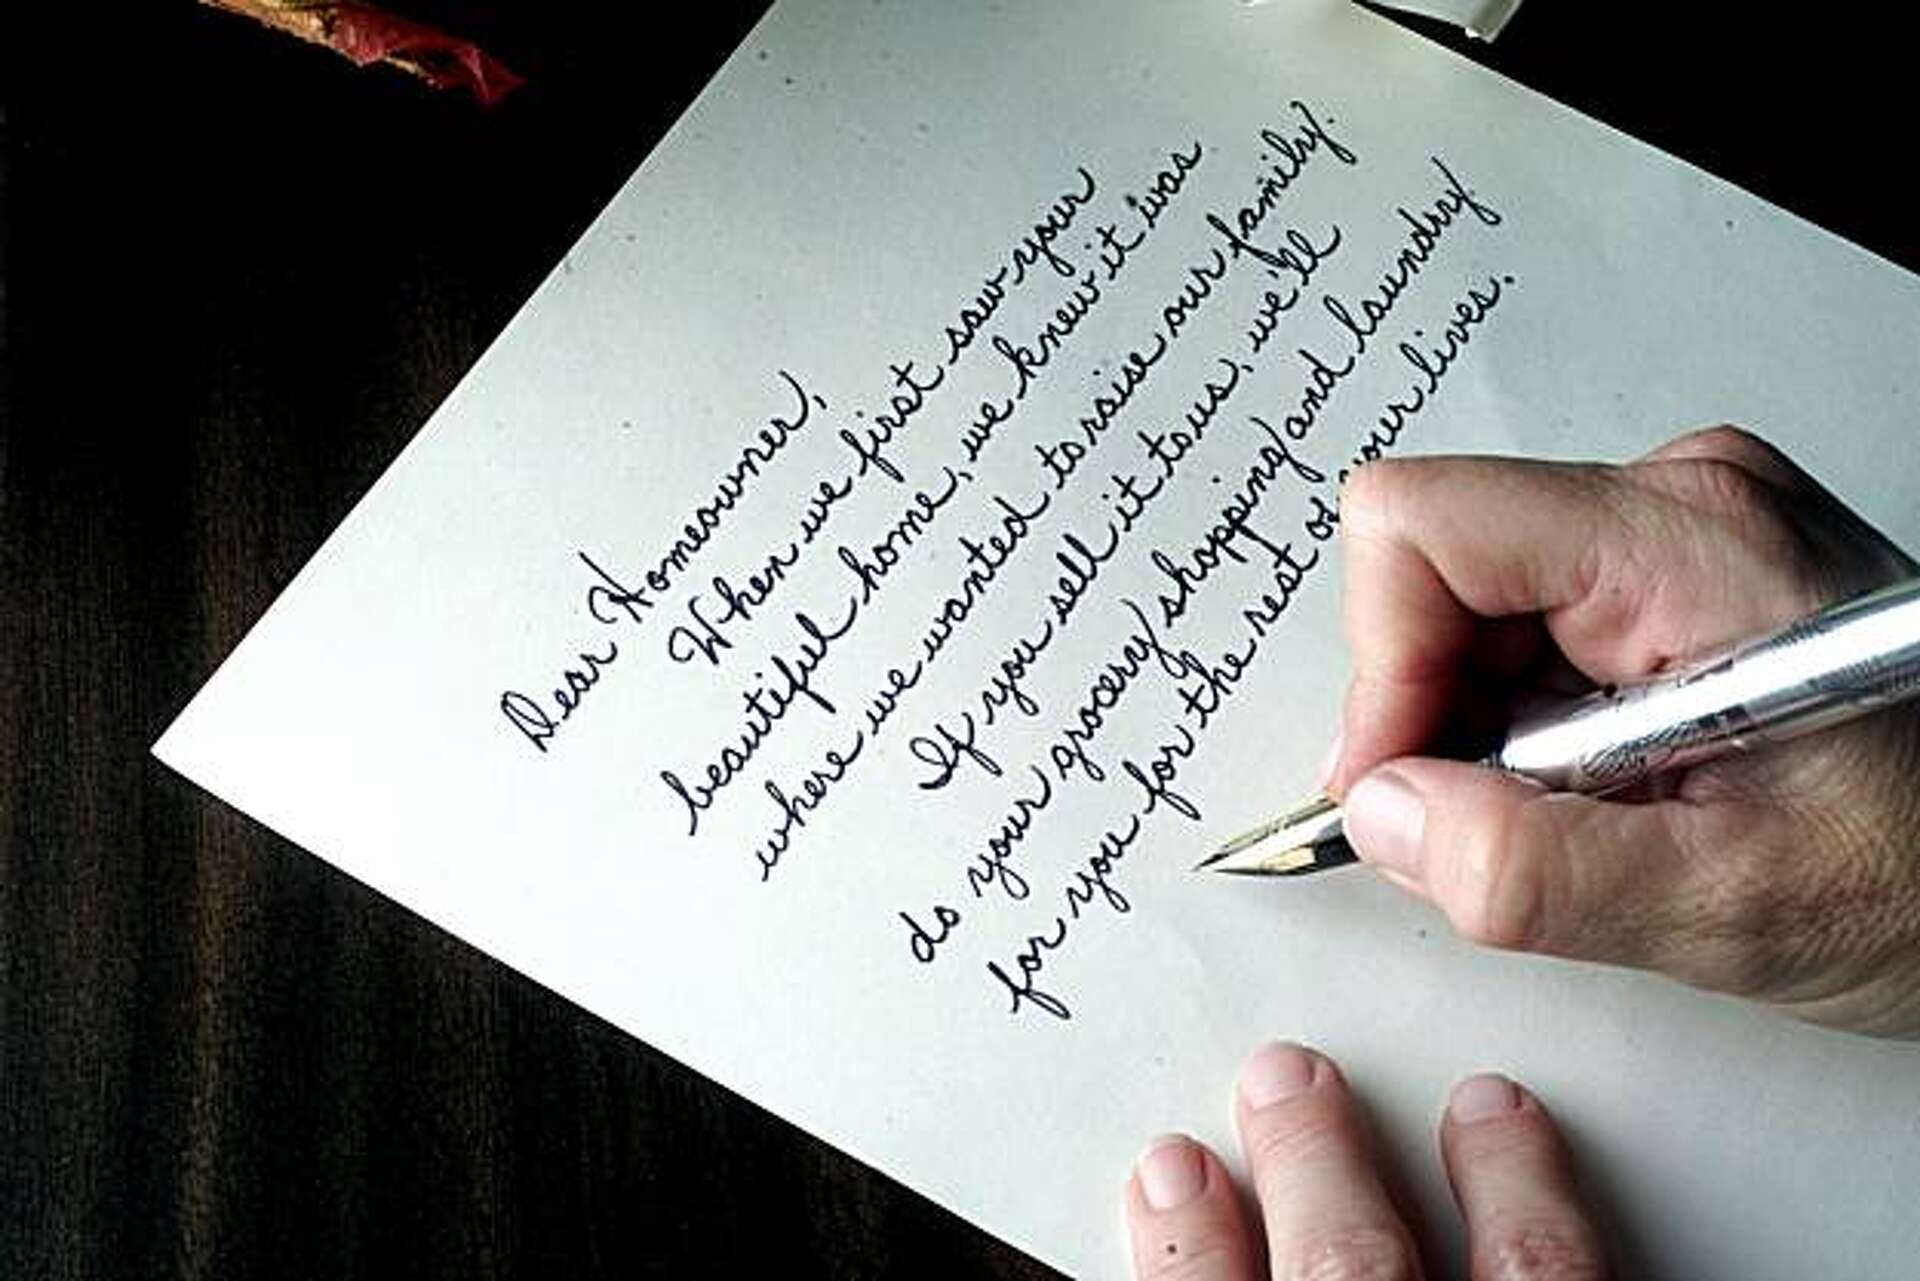 Dear Homeowner,
When we first saw your
beautiful home, we knew it was
where we wanted to raise our family.
If you sell it to us, we'll
do your grocery shopping and laundry
for you for the rest of your lives.